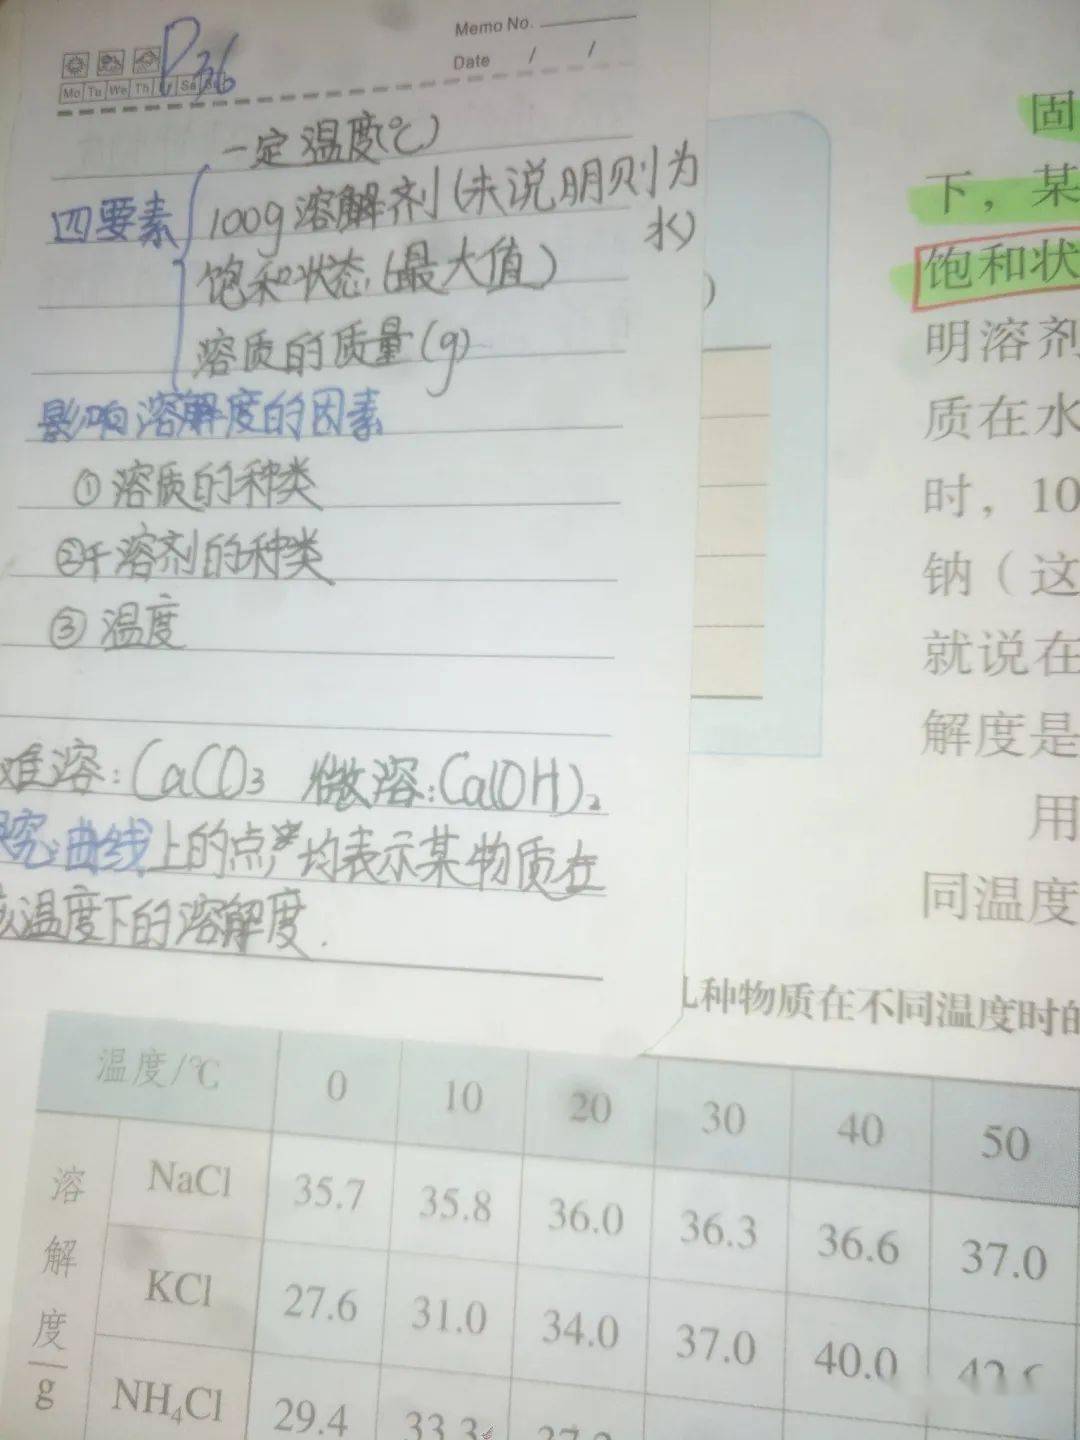 Memo No.
Date / /
P36
Mo Tu We Th Sa
一定温度(℃)
四要素
100g溶解剂(未说明则为
水)
饱和状态(最大值)
溶质的质量(g)
影响溶解度的因素
①溶质的种类
②溶剂的种类
③温度
难溶:CaCO3 微溶:Ca(OH)2
究:曲线上的点,均表示某物质在
该温度下的溶解度.
固
下，某
饱和状
明溶剂
质在水
时，10
钠（这
就说在
解度是
用
同温度
几种物质在不同温度时的
温度/℃ 0 10 20 30 40 50
溶解度/g
NaCl 35.7 35.8 36.0 36.3 36.6 37.0
KCl 27.6 31.0 34.0 37.0 40.0
NH4Cl 29.4 33.3 37.2